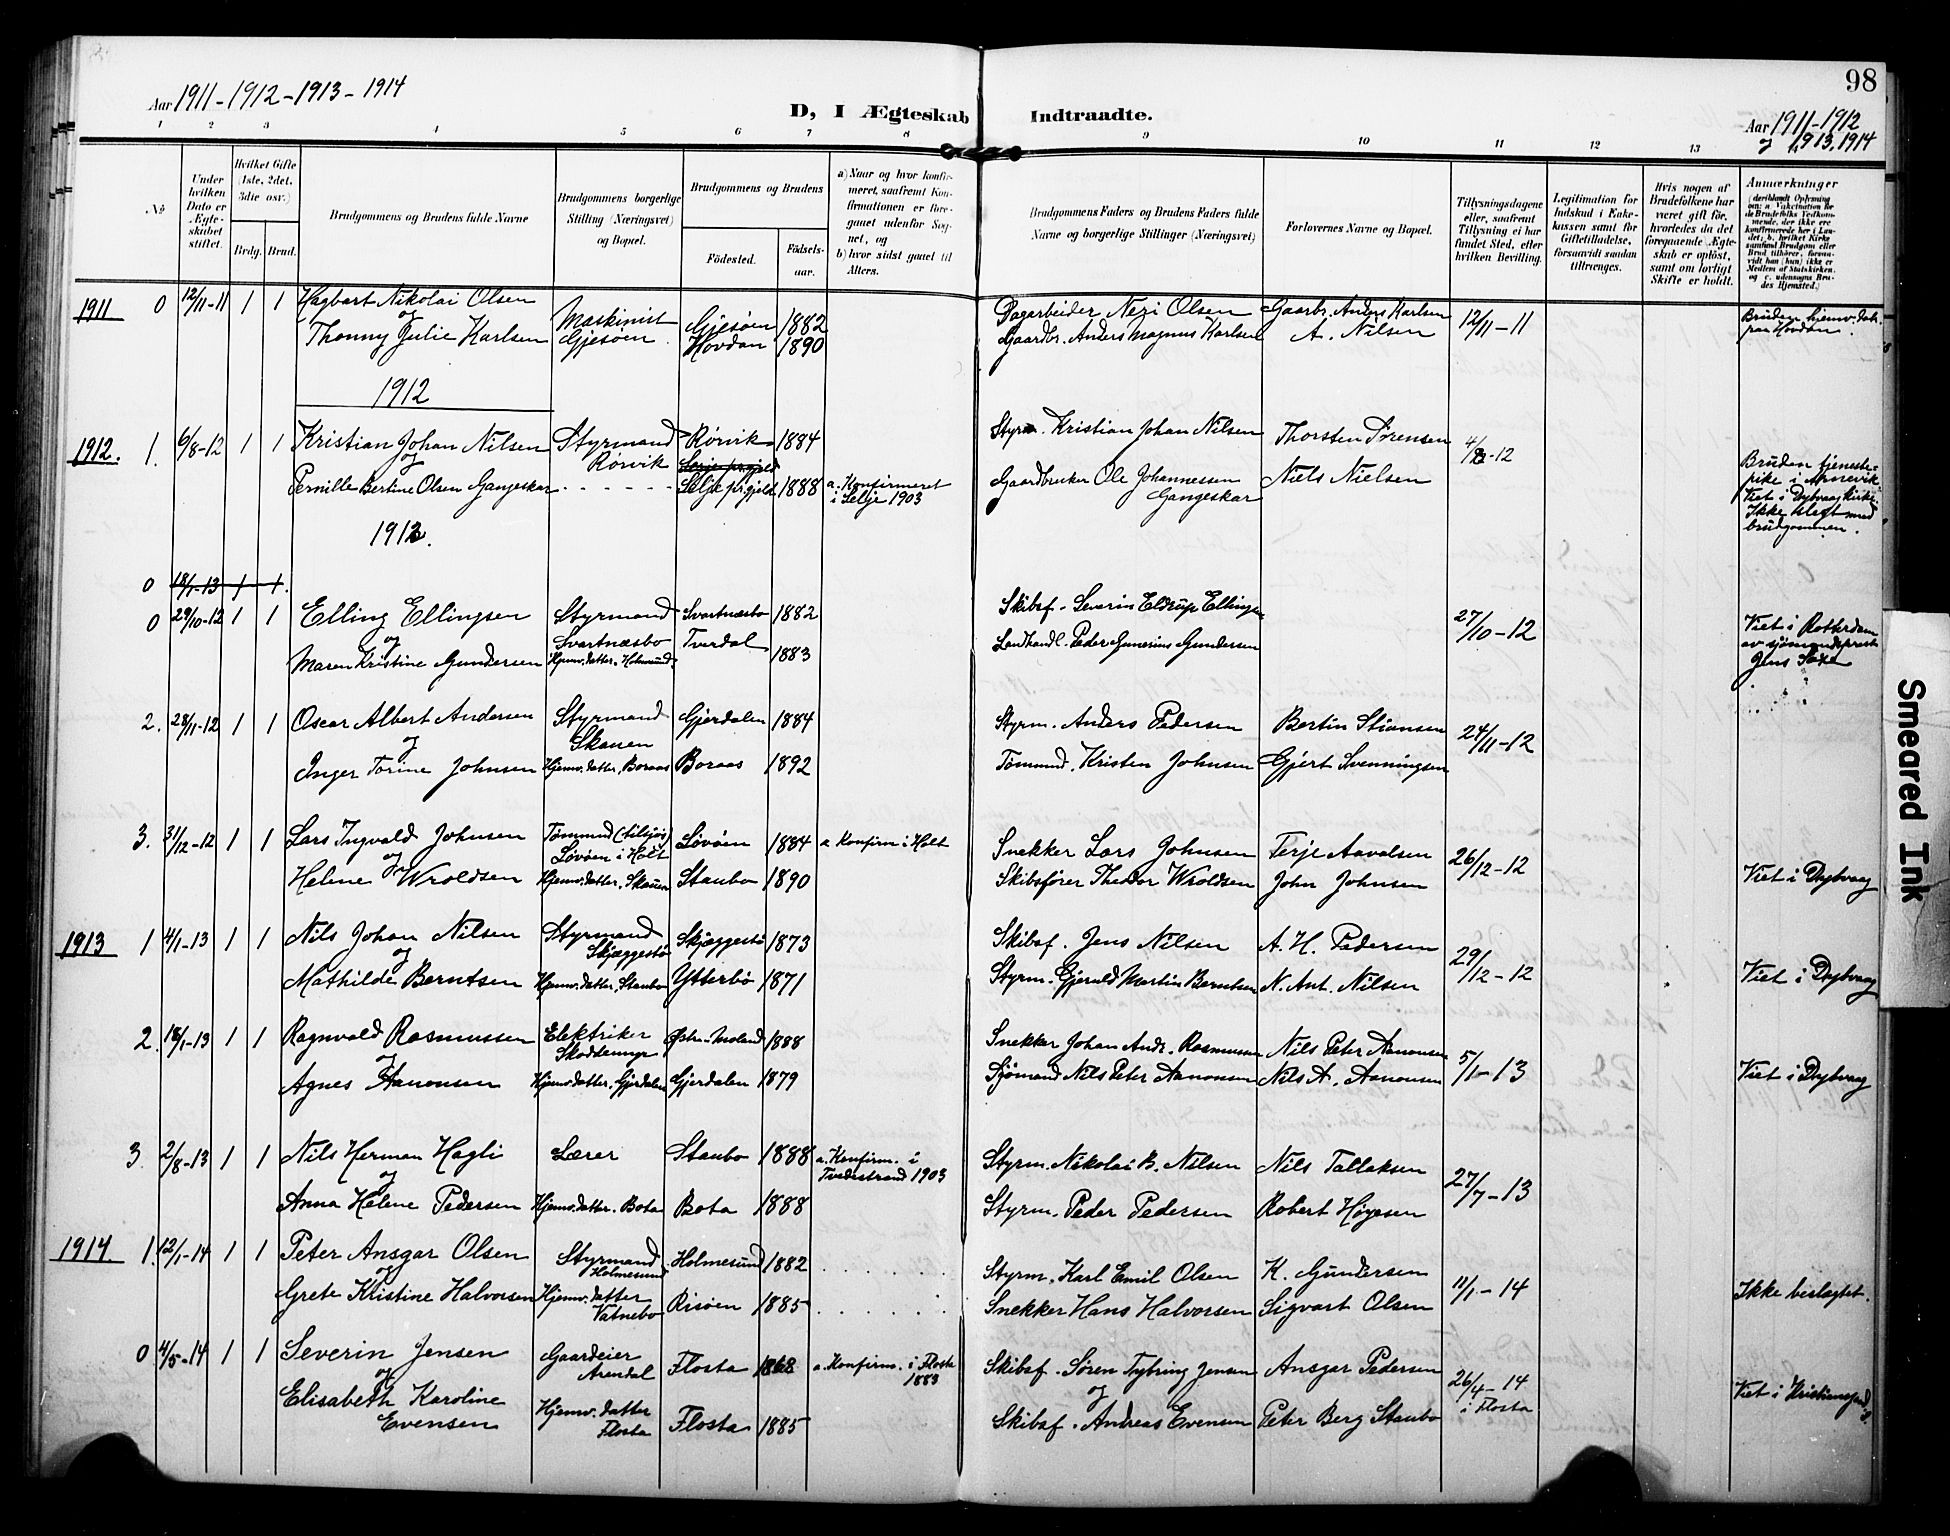 98
Aar 1911-1912-1913-1914
D, I Ægteskab Indtraadte.
Aar 1911-1912
og 1913, 1914
1 2 3 4 5 6 7 8 9 10 11 12 13
No
Under hvilken Dato er Ægteskabet stiftet.
Hvilket Gifte (1ste, 2det, 3die osv.)
Brdg. Brud.
Brudgommens og Brudens fulde Navne
Brudgommens borgerlige Stilling (Næringsvei) og Bopæl.
Brudgommens og Brudens
Fødested. Fødselsaar.
a) Naar og hvor konfirmeret, saafremt Konfirmationen er foregaaet udenfor Sognet, og
b) hvor sidst gaaet til Alters.
Brudgommens Faders og Brudens Faders fulde Navne og borgerlige Stillinger (Næringsvei)
Forlovernes Navne og Bopæl.
Tillysningsdagene eller, saafremt Tillysning ei har fundet Sted, efter hvilken Bevilling.
Legitimation for Indskud i Enkekassen samt for Giftetilladelse, forsaavidt saadan tiltrænges.
Hvis nogen af Brudefolkene har været gift før, hvorledes da det foregaaende Ægteskab er opløst, samt om lovligt Skifte er holdt.
Anmærkninger
1911 0 12/11-11 1 1 Hagbart Nikolai Olsen
og
Thonny Julie Karlsen
Maskinist
Gjesøen
Gjesøen 1882
Hovdan 1890
Dagarbeider Nezi Olsen
Gaardbr. Anders Magnus Karlsen
Gaardbr. Anders Karlsen
A. Nilsen
12/11-11
Bruden hjemv. dat.
paa Hovdan.
1912
1912. 1. 6/8-12 1 1 Kristian Johan Nilsen
og
Pernille Bertine Olsen Gangeskar
Styrmand
Rørvik
Rørvik 1884
Selje pr.gjeld
Selje pr.gjeld 1888
a. Konfirmeret
i Selje 1903
Styrm. Kristian Johan Nilsen
Gaardbruker Ole Johannessen
Gangeskar
Thorsten Sørensen
Niels Nielsen
4/8-12
Bruden tjeneste-
pike i Arnevik
Viet i Dybvaag Kirke.
Ikke slegt med
brudgommen.
1912.
0 18/1-13 1 1.
0 29/10-12 1 1 Elling Ellingsen
og
Maren Kristine Gundersen
Styrmand
Svartnæsbo
Hjemv. datter. Holmesund
Svartnæsbo 1882
Tverdal 1883
Skibsf. Severin Eldrup Ellingsen
Landhandl. Peder Gunerius Gundersen
27/10-12
Viet i Rotterdam
av sjømandsprest
Jens Saxe
2. 28/11-12 1 1 Oscar Albert Andersen
og
Inger Torine Johnsen
Styrmand
Skauen
Hjemv. datter, Boraas
Gjerdalen 1884
Boraas 1892
Styrm. Anders Pedersen
Tømmmd. Kristen Johnsen
Bertin Stiansen
Gjert Svenningsen
24/11-12
3. 31/12-12 1 1 Lars Ingvald Johnsen
og
Helene Wroldsen
Tømmmd (tilsjøs)
Løvøen i Holt
Hjemv. datter, Skauen
Løvøen 1884
Staubo 1890
a Konfirm i Holt
Snekker Lars Johnsen
Skibsfører Theodor Wroldsen
Terje Aavalsen
John Johnsen
26/12-12
Viet i Dybvaag
1913 1 4/1-13 1 1 Nils Johan Nilsen
og
Mathilde Berntsen
Styrmand
Skjæggestø
Hjemv. datter, Staubo
Skjæggestø 1873
Ytterbø 1871
Skibsf. Jens Nilsen
Styrm. Gjerald Martin Berntsen
A. H. Pedersen
N. Ant. Nilsen
29/12-12
Viet i Dybvaag
2. 18/1-13 1 1 Ragnvald Rasmussen
og
Agnes Aanonsen
Elektriker
Hjemv. datter, Gjerdalen
Østr-Moland 1888
Gjerdalen 1879
Snekker Johan Andr. Rasmussen
Sjømand Nils Peter Aanonsen
Nils Peter Aanonsen
Nils A. Aanonsen
5/1-13
Viet i Dybvaag
3. 2/8-13 1 1 Nils Herman Hagli
og
Anna Helene Pedersen
Lærer
Hjemv. datter. Bota
Staubo 1888
Bota 1888
a. Konfirm. i
Tvedestrand 1903
Styrm. Nikolai B. Nilsen
Styrm. Peder Pedersen
Nils Tallaksen
Robert Høyesen
27/7-13
1914. 1. 12/1-14 1 1 Peter Ansgar Olsen
og
Grete Kristine Halvorsen
Styrmand
Holmesund
Hjemv. datter
Vatnebo
Holmesund 1882
Risøen 1885
Styrm. Karl Emil Olsen
Snekker Hans Halvorsen
K. Gundersen
Sigvart Olsen
11/1-14
Ikke beslegtet.
0 4/5-14 1 1 Severin Jensen
og
Elisabeth Karoline
Evensen
Gaardeier
Arendal
Hjemv. datter
Flosta
Flosta 1868
Flosta 1885
a. Konfirm. i Flosta
1883
Skibsf. Søren Tybring Jensen
og
Skibsf. Andreas Evensen
Ansgar Pedersen
Peter Berg Staubo
26/4-14
i Flosta
Viet i Kristianssand
S.
Smeared Ink